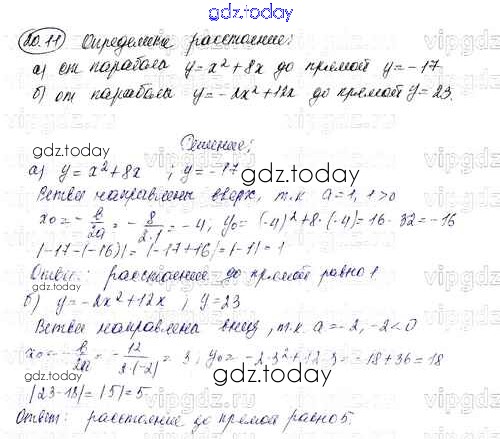 gdz.today
20.11 Определите расстояние:
а) от параболы y = x² + 8x до прямой y = -17
б) от параболы y = -2x² + 12x до прямой y = 23.
Решение:
gdz.today
а) y = x² + 8x ; y = -17
Ветви направлены вверх, т.к a = 1, 1 > 0
x₀ = - b/2a = - 8/2·1 = -4, y₀ = (-4)² + 8·(-4) = 16 - 32 = -16
|-17-(-16)| = |-17+16| = |-1| = 1
Ответ: расстояние до прямой равно 1
б) y = -2x² + 12x ; y = 23
Ветви направлены вниз, т.к. a = -2, -2 < 0
x₀ = - b/2a = - 12/2·(-2) = 3, y₀ = -2·3² + 12·3 = -18 + 36 = 18
|23-18| = |5| = 5
Ответ: расстояние до прямой равно 5.
gdz.today
gdz.today
gdz.today
gdz.today
vipgdz
vipgdz
vipgdz
vipgdz